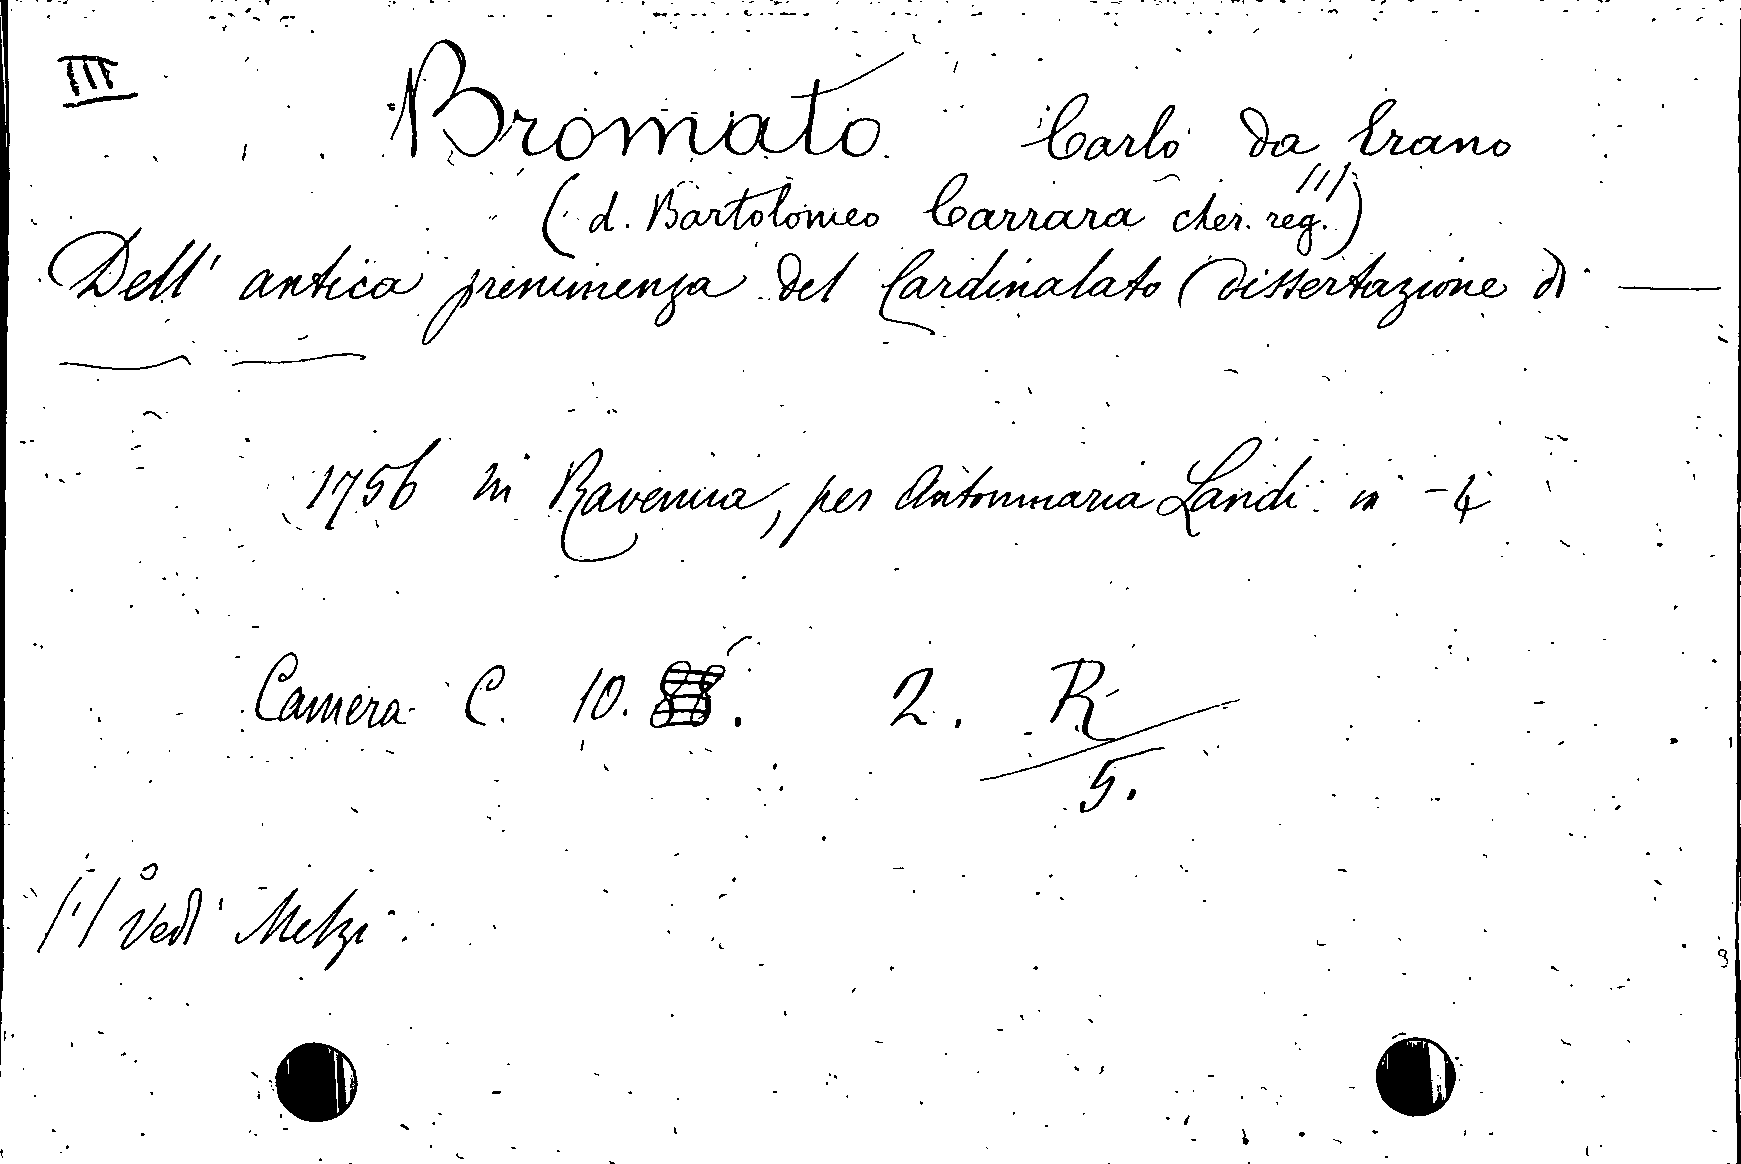 III
Bromato Carlo da Erano
(d. Bartolomeo Carrara cher. reg.) /1/
Dell' antica preminenza del Cardinalato (dissertazione di —
— —
1756 in Ravenna, per Antonmaria Landi in -4
Camera C. 10. 2. R/5.
/1/ Vedi Melzi.